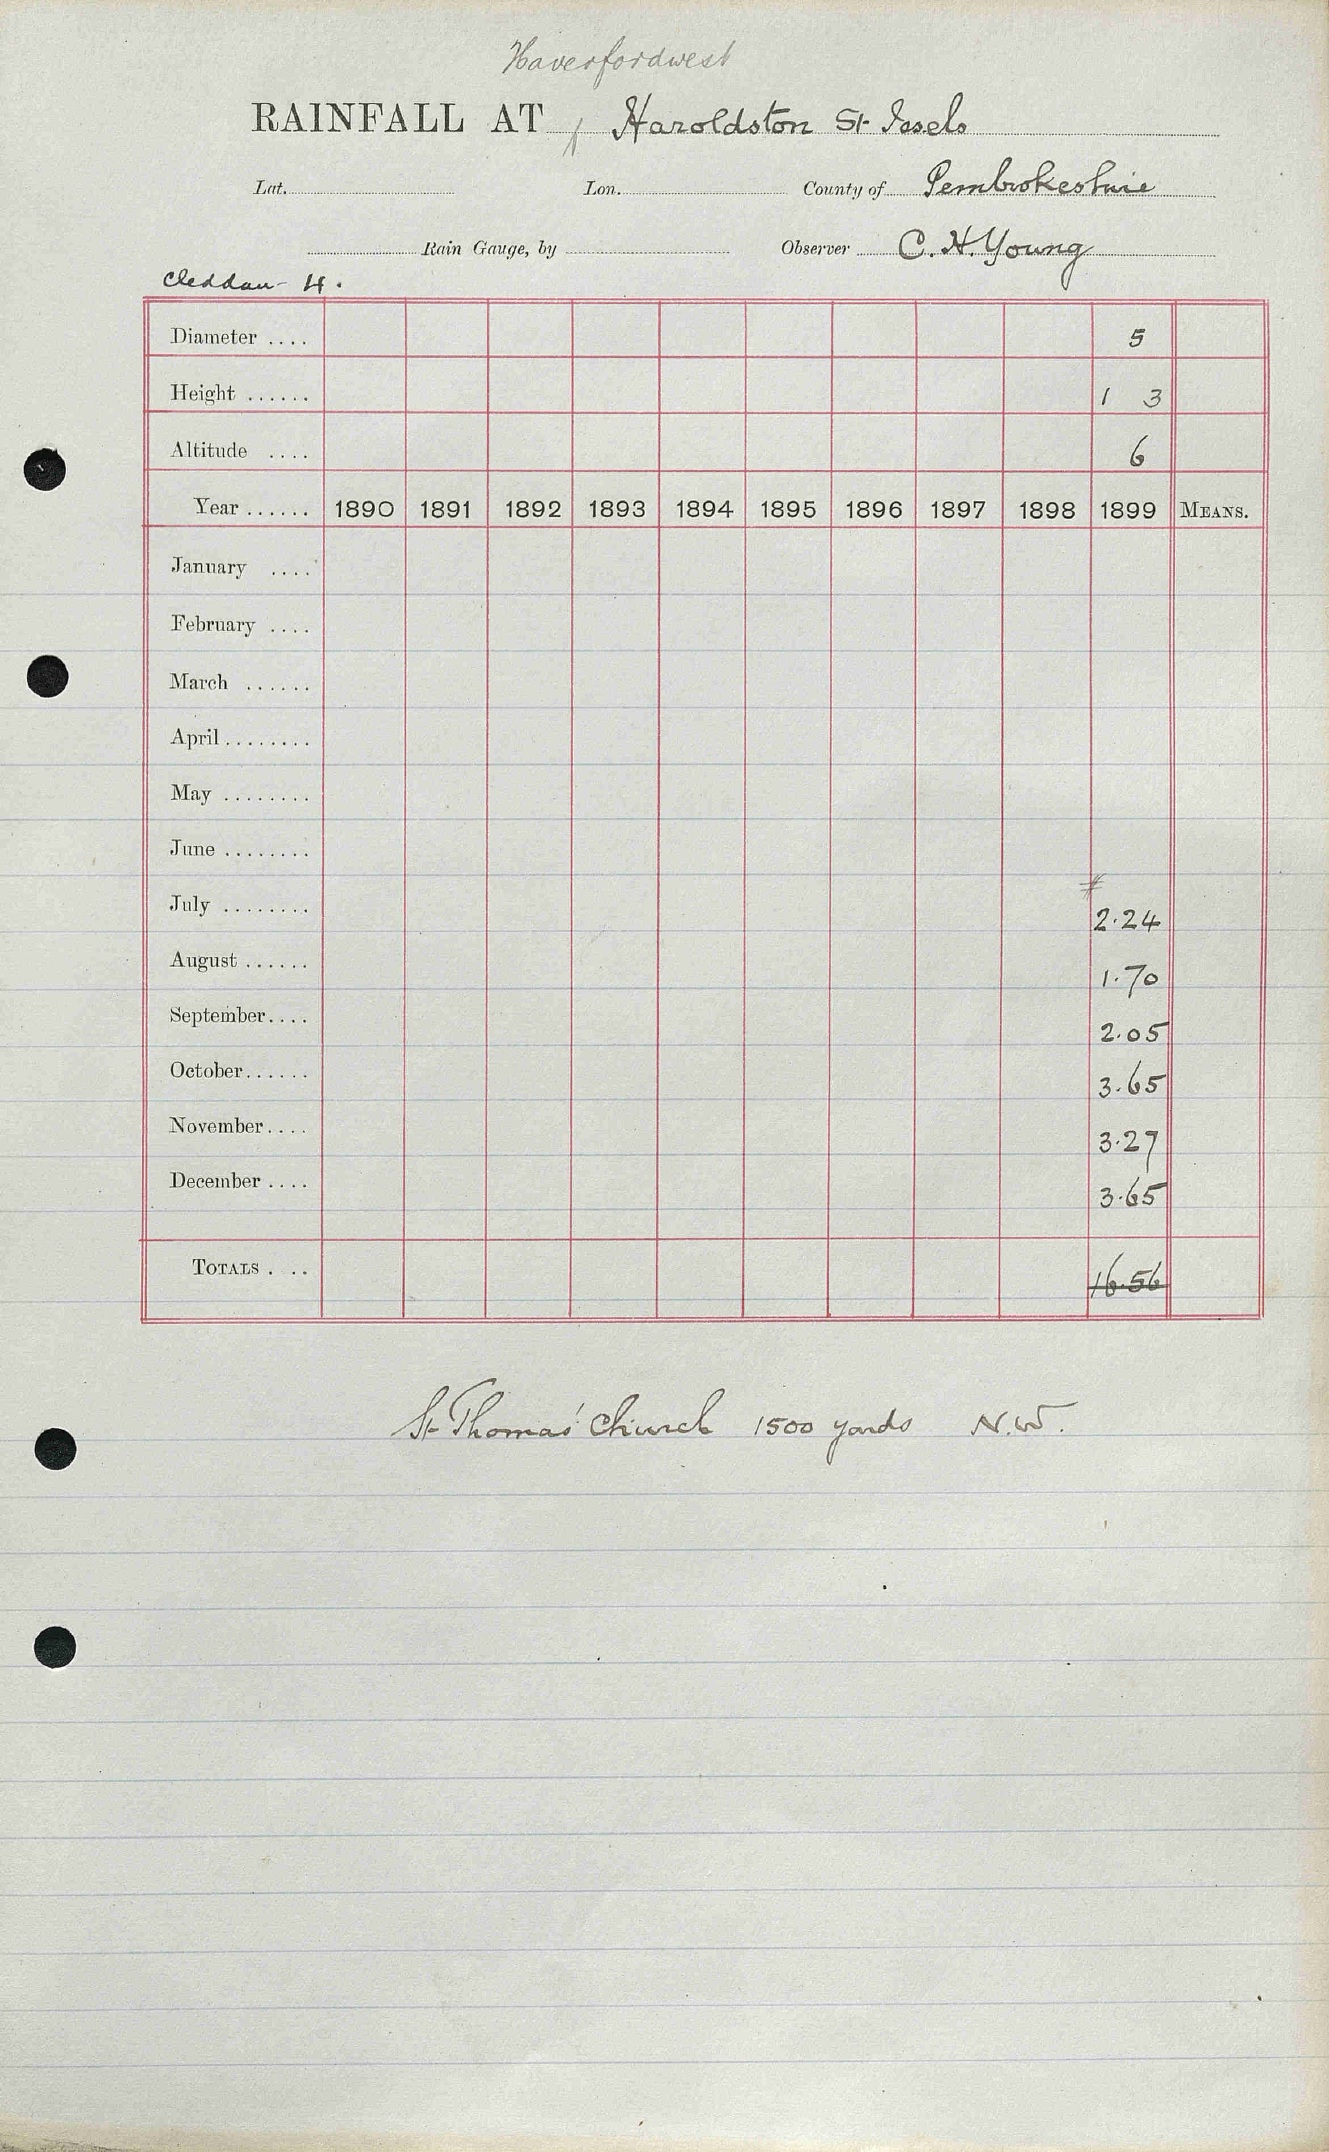 Haverfordwest
RAINFALL AT Haroldston St Issels
Lat. Lon. County of Pembrokeshire
Rain Gauge, by Observer C. H. Young
Cleddau - H.
Diameter .... 5
Height ...... 1 3
Altitude .... 6
Year ...... 1890 1891 1892 1893 1894 1895 1896 1897 1898 1899 MEANS.
January ....
February ....
March ......
April ........
May ........
June ........
July ........ # 2.24
August ...... 1.70
September.... 2.05
October...... 3.65
November.... 3.27
December.... 3.65
TOTALS . .. 16.56
St Thomas' Church 1500 yards N.W.